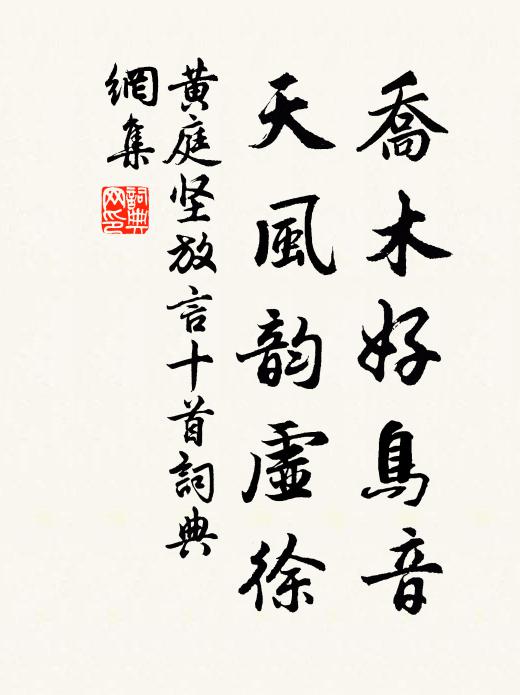 喬木好鳥音
天風韵虛徐
黃庭坚放言十首詞典
網集
詞典网印